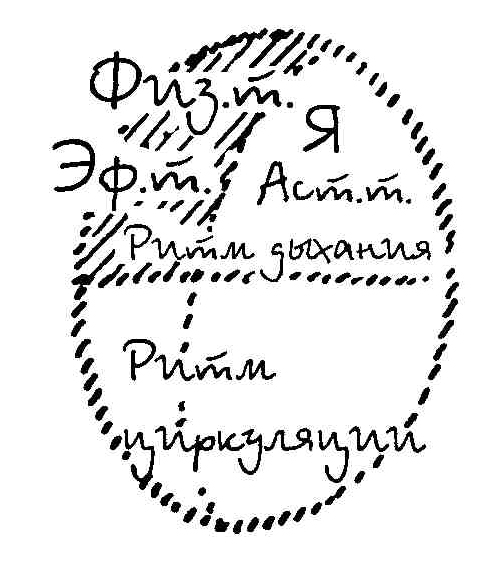 Физ.т.
Я
Эф.т.
Аст.т.
Ритм дыхания
Ритм
циркуляции